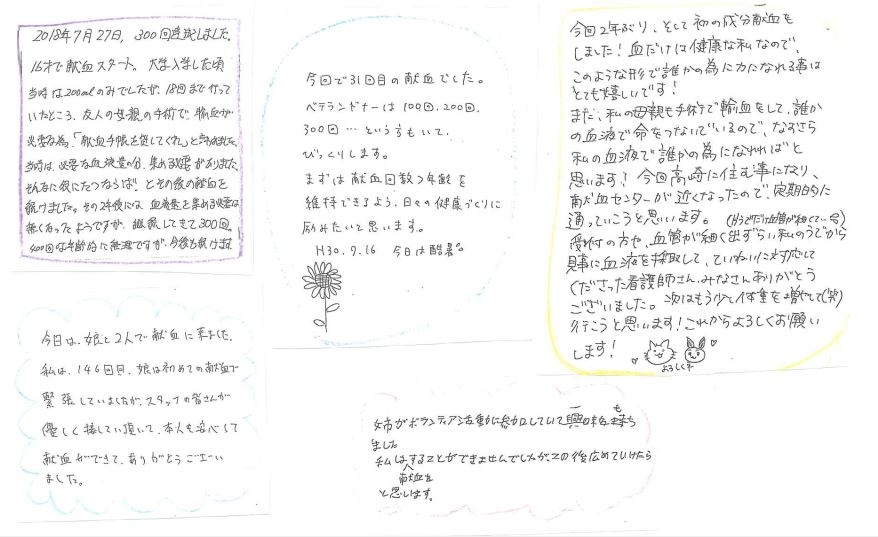 2018年7月27日、300回達成しました。
16才で献血スタート。大学入学した頃
当時は200mlのみでしたが、18回まで行って
いたところ、友人の母親の手術で、輸血が
必要な為、「献血手帳を貸してくれ」と言われました。
当時は、必要な血液量の分、集める必要がありました。
そんなに役にたつならば!とその後の献血を
続けました。その2年後には、血液を集める必要は
無くなったようですが、継続してきて300回。
400回は年齢的に無理ですが、今後も続けます
今回で31回目の献血でした。
ベテランドナーは100回、200回、
300回…という方もいて、
びっくりします。
まずは献血回数>年齢を
維持できるよう、日々の健康づくりに
励みたいと思います。
H30.9.16 今日は酷暑。
今回2年ぶり、そして初の成分献血を
しました!血だけは健康な私なので、
このような形で誰かの為に力になれる事は
とても嬉しいです!
また、私の母親も手術で輸血をして、誰か
の血液で命をつないでいるので、なおさら
私の血液で誰かの為になれればと
思います!今回高崎に住む事になり、
献血センターが近くなったので、定期的に
通っていこうと思います。
受付の方や、血管が細く出ずらい私のうでから
見事に血液を採取して、ていねいに対応して
くださった看護師さん、みなさんありがとう
ございました。次はもう少し体重を増やして(笑)
行こうと思います!これからよろしくお願い
します!
よろしくネ
今日は、娘と2人で献血に来ました。
私は、146回目、娘は初めての献血で
緊張していましたが、スタッフの皆さんが
優しく接して頂いて、本人も安心して
献血ができて、ありがとうござい
ました。
姉がボランティア活動に参加していて興味を持ち
ました
私は献血をすることができませんでしたが、この後広めていけたら
と思います。